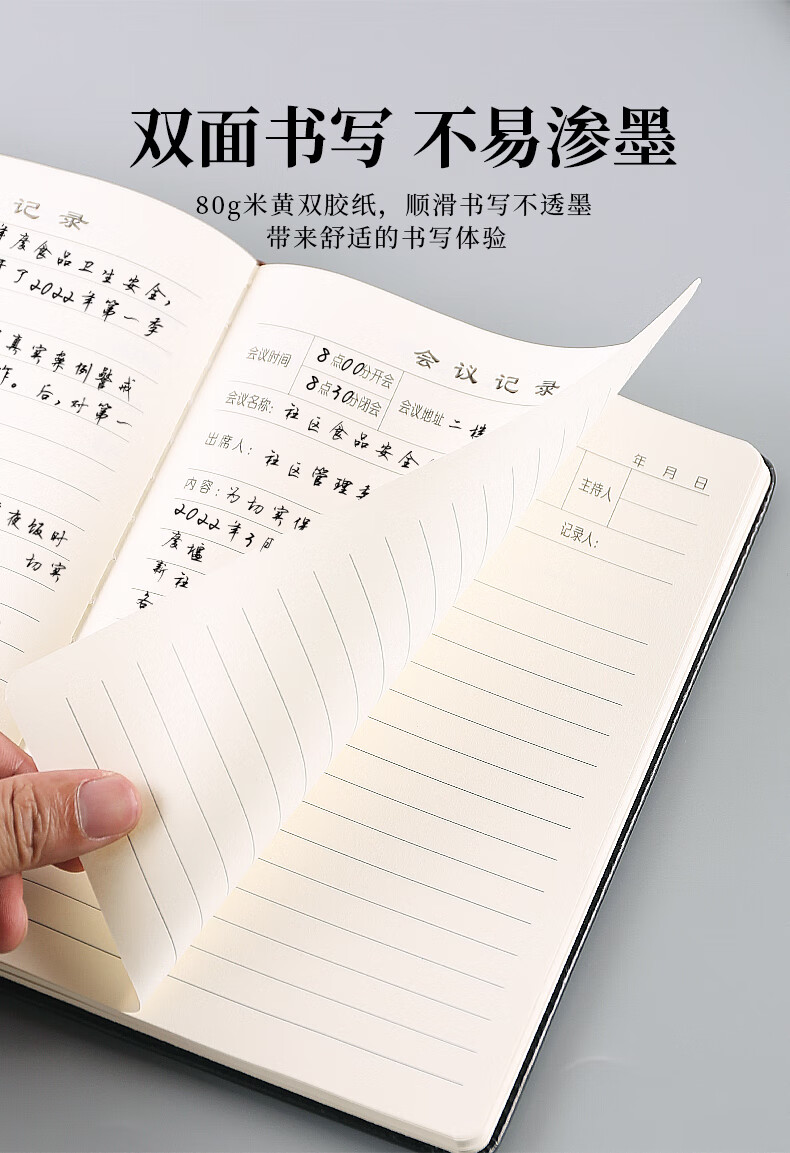 双面书写 不易渗墨
80g米黄双胶纸，顺滑书写不透墨
带来舒适的书写体验
记录
年度食品卫生安全，
了2022年第一季
真实案例警戒
作。后，对第一
夜饭时
切实
会议记录
会议时间 8点00分开会
8点30分闭会
会议地址 二楼
会议名称：社区食品安全
出席人：社区管理
内容：为切实保
2022年3月
度
新社
各
年 月 日
主持人
记录人：